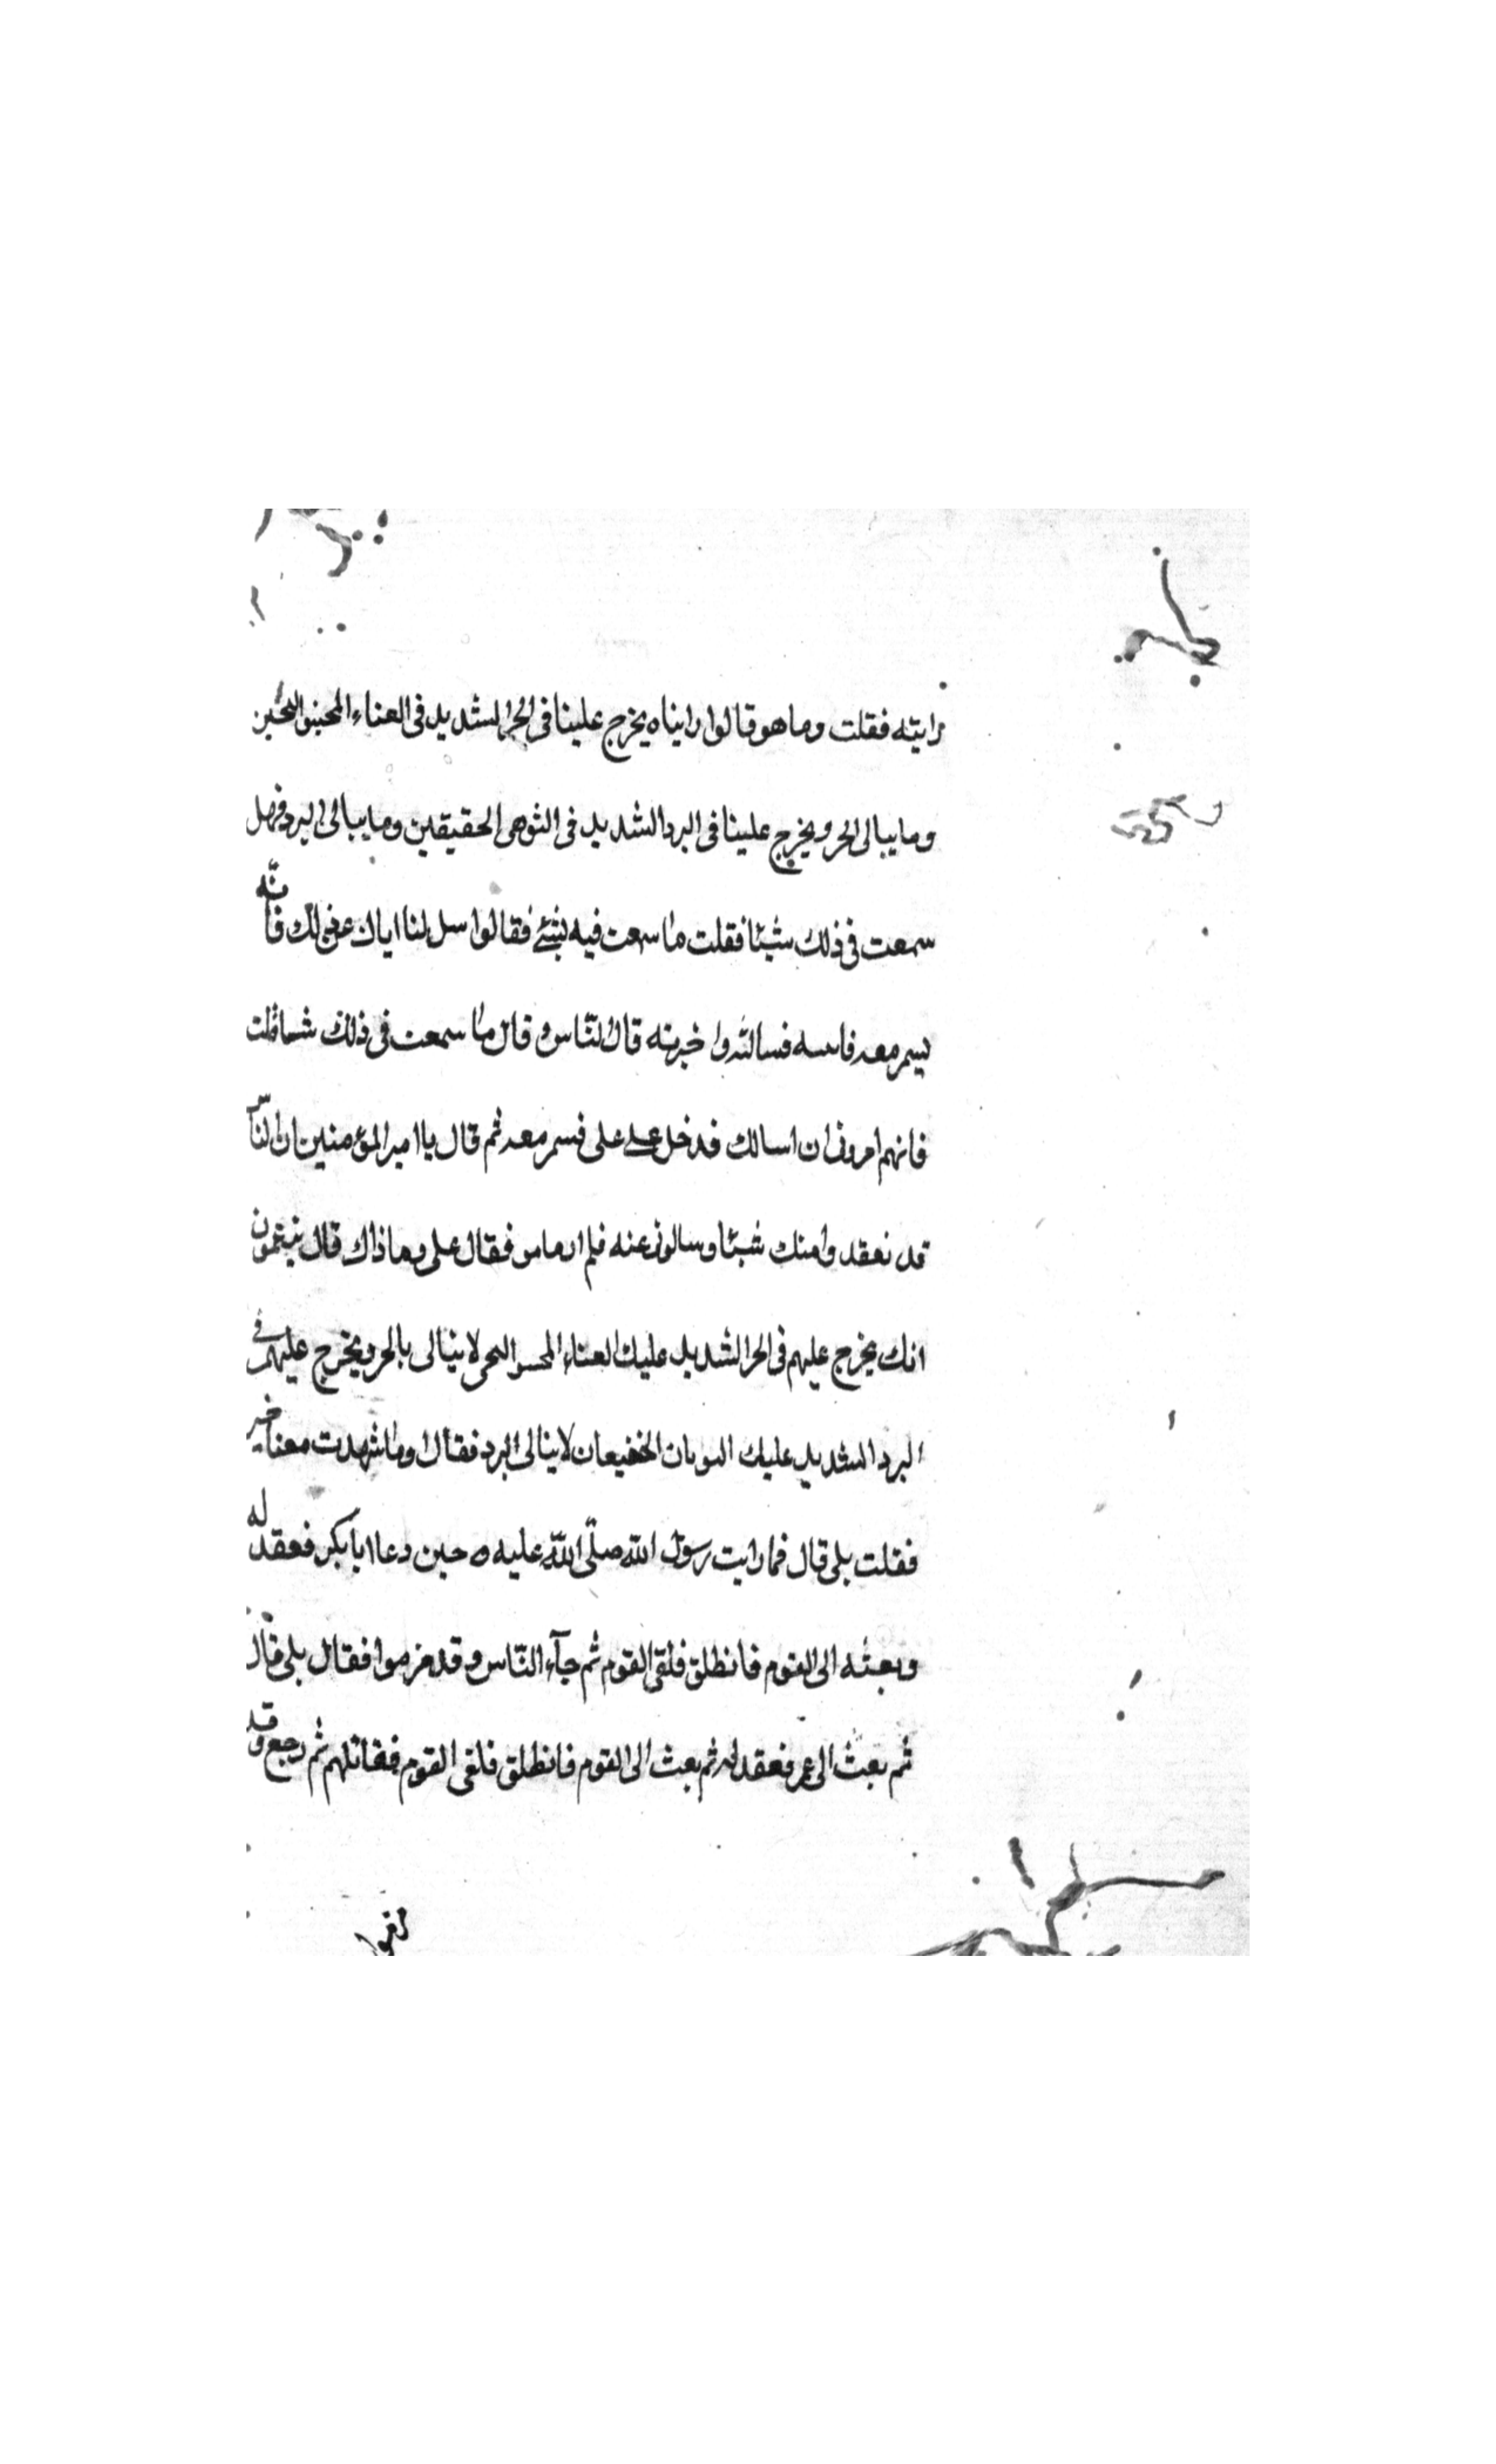 رايته فقلت وما هو قالوا رايناه يخرج علينا فى الحر الشديد فى العناء المحبنو
وما يبالى الحر ويخرج علينا فى البرد الشديد فى الثوهى الحقيقين وما يبالى البرد فهل
سمعت فى ذلك شيئا فقلت ما سمعت فيه بشئ فقالوا سل لنا اباك عن ذلك فانّه
يسمر معه فاسه فسالته واخبرته قال النّاس وقال ما سمعت فى ذلك شسا قلت
فانهم امرونى ان اسالك فدخل على على فسمر معه ثم قال يا امير المؤمنين ان النّاس
قد نعقد وامنك شيئا وسالونى عنه فلم ار ما هو فقال على وما ذاك قال
انك يخرج عليهم فى الحر الشديد عليك العناء المحسو لا يبالى بالحر ويخرج عليهم فى
البرد الشديد عليك السوبان الخفيعان لا يبالى البرد فقال او ما شهدت معنا خيبر
فقلت بلى قال فما رايت رسول الله صلّى اللّه عليه ه حين دعا ابا بكر فعقد له
وبعثه الى القوم فانطلق فلقى القوم ثم جآء النّاس وقد هزموا فقال بلى قال
ثم بعث الى عمر فعقد له ثم بعث الى القوم فانطلق فلقى القوم فقاتلهم ثم رجع وقد